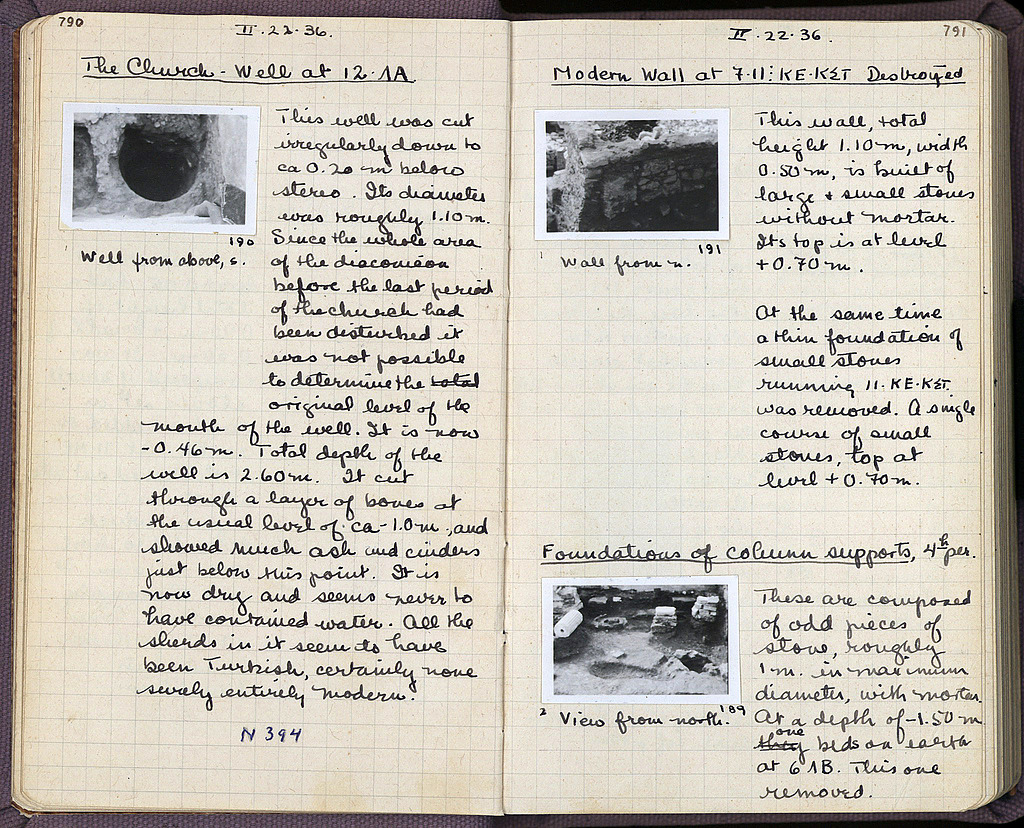 790
II.22.36.
The Church - Well at 12.ΛA
This well was cut
irregularly down to
ca 0.20 m below
stereo. Its diameter
was roughly 1.10 m.
Since the whole area
of the diaconicon
before the last period
of the church had
been disturbed it
was not possible
to determine the total
original level of the
mouth of the well. It is now
-0.46 m. Total depth of the
well is 2.60 m. It cut
through a layer of bones at
the usual level of ca -1.0 m, and
showed much ash and cinders
just below this point. It is
now dry and seems never to
have contained water. All the
sherds in it seem to have
been Turkish, certainly none
surely entirely modern.
190
Well from above, s.
N 394
791
II.22.36.
Modern Wall at 7-11:KE-KΣT Destroyed
This wall, total
height 1.10 m, width
0.50 m, is built of
large + small stones
without mortar.
Its top is at level
+0.70 m.
191
1 Wall from n.
At the same time
a thin foundation of
small stones
running 11.KE-KΣT.
was removed. A single
course of small
stones, top at
level +0.70 m.
Foundations of column supports, 4th per.
These are composed
of odd pieces of
stone, roughly
1 m. in maximum
diameter, with mortar.
At a depth of -1.50 m
they one beds on earth
at 6 ΛB. This one
removed.
189
2 View from north.